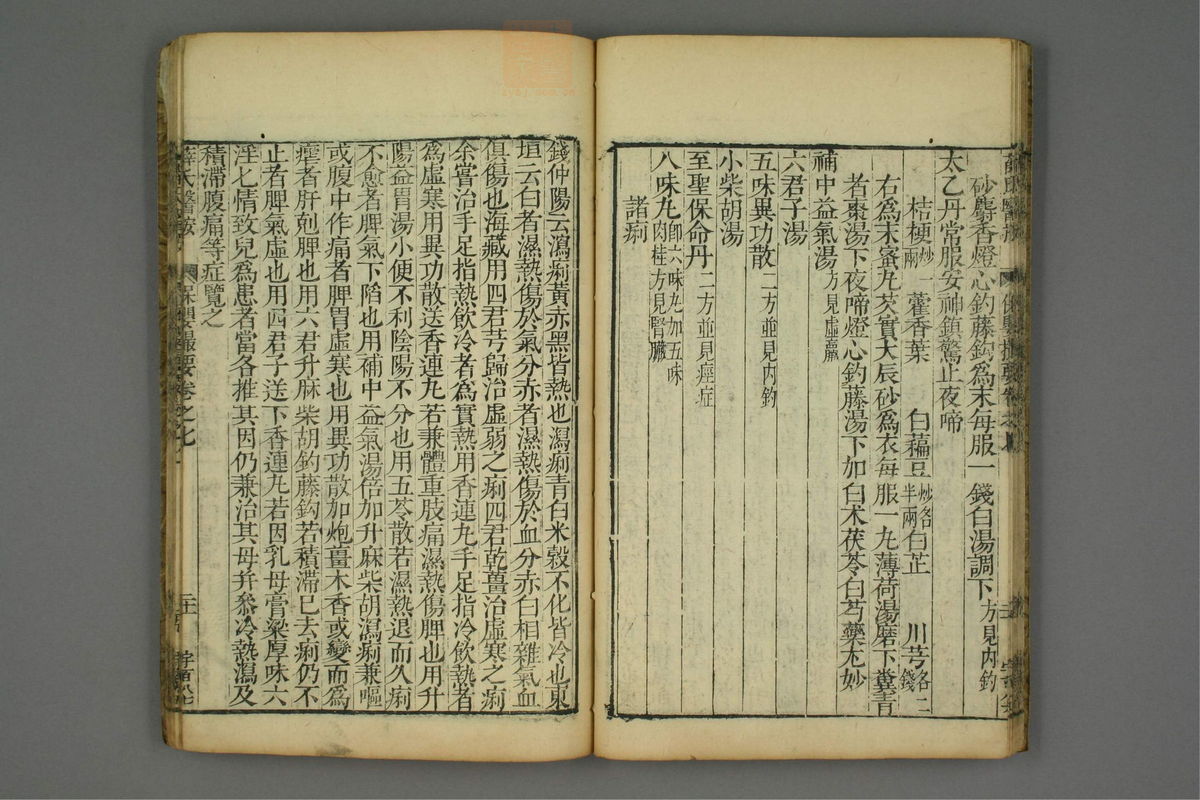 砂麝香燈心釣藤鈎為末每服一錢白湯調下方見內釣
太乙丹常服安神鎮驚止夜啼
桔梗炒兩 藿香葉 白藊豆炒各半兩 白芷 川芎各二錢
右為末蜜丸芡實大辰砂為衣每服一丸薄荷湯磨下糞青
者棗湯下夜啼燈心釣藤湯下加白朮茯苓白芍藥尤妙
補中益氣湯方見虛羸
六君子湯
五味異功散二方並見內釣
小柴胡湯
至聖保命丹二方並見痙症
八味丸即六味丸加五味肉桂方見腎臟
諸痢
錢仲陽云瀉痢黃赤黑皆熱也瀉痢青白米穀不化皆冷也東
垣云白者濕熱傷於氣分赤者濕熱傷於血分赤白相雜氣血
俱傷也海藏用四君芎歸治虛弱之痢四君乾薑治虛寒之痢
余嘗治手足指熱飲冷者為實熱用香連丸手足指冷飲熱者
為虛寒用異功散送香連丸若兼體重肢痛濕熱傷脾也用升
陽益胃湯小便不利陰陽不分也用五苓散若濕熱退而久痢
不愈者脾氣下陷也用補中益氣湯倍加升麻柴胡瀉痢兼嘔
或腹中作痛者脾胃虛寒也用異功散加炮薑木香或變而為
瘧者肝剋脾也用六君升麻柴胡釣藤鈎若積滯已去痢仍不
止者脾氣虛也用四君子送下香連丸若因乳母膏粱厚味六
淫七情致兒為患者當各推其因仍兼治其母并參冷熱瀉及
積滯腹痛等症覽之
薛氏醫按 保嬰撮要卷之七